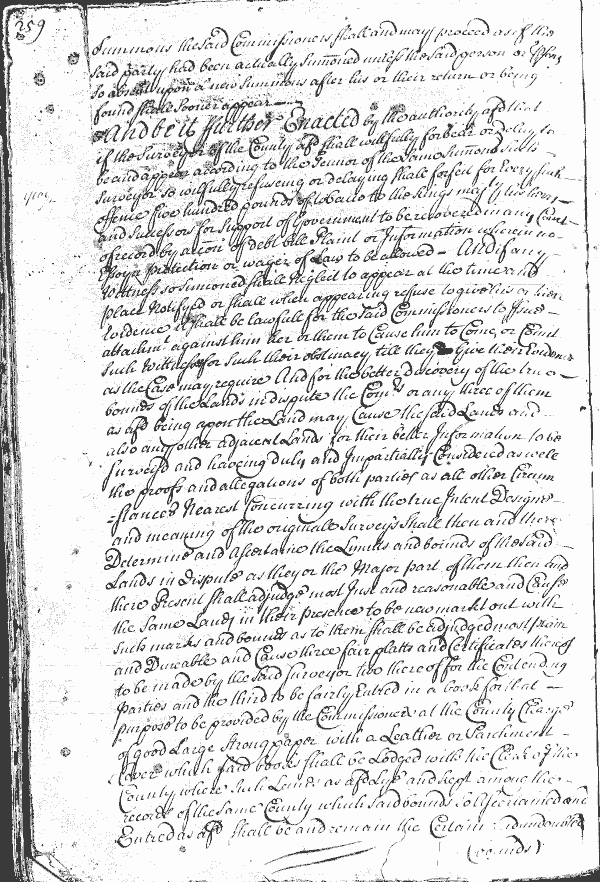 259
Summons the said Commissioners shall and may proceed as if the
said party had been actually Summoned unless the said person or
so absent upon a new Summons after his or their return or being
found shall sooner appear
And be it ffurther Enacted by the authority afsd that
if the Surveyor of the County afsd shall willfully forbear or delay to
be and appear according to the Tennor of the same Summons such
Surveyor so wilfully refusing or delaying shall forfeit for Every such
offence ffive hundred pounds of tobacco to the Kings majty his heirs
and successors for support of Government to be recovered in any Court
of record by accon of debt bill Plaint or Information wherein no
Essoyn protection or wager of Law to be allowed - And if any
Witness so summoned shall Neglect to appear at the time and
place Notifyed or shall when appearing refuse to give his or their
Evidence it shall be lawfull for the said Commissioners to Issue
attachmt against him her or them to Cause him to Come, or
such Witness for such their obstinacy till they Give their Evidence
as the Case may require And for the better discovery of the true
bounds of the Lands in dispute the Comrs or any three of them
as afsd being upon the Land may Cause the said Lands and
also any other adjacent Lands for their better Information to be
surveyed and haveing duly and Impartially Considered as well
the proofs and allegations of both parties as all other Circum
=stances Nearest Concurring with the true Intent Designe
and meaning of the originall Surveys shall then and there
Determine and ascertaine the Limits and bounds of the said
Lands in dispute as they or the Major part of them then and
there Present shall adjudge most Just and reasonable and Cause
the same Lands in their presence to be new markt out with
such marks and bounds as to them shall be adjudged most plain
and Dureable and Cause three fair platts and Certificates thereof
to be made by the said surveyor two thereof for the Contending
Parties and the third to be fairly Entred in a book for that
purpose to be provided by the Commissioners at the County Charge
of good Large strong paper with a Leather or Parchment
Cover which said books shall be Lodged with the Clerk of the
County where such Lands as afsd Lye and kept among the
records of the same County which said bounds so Ascertained and
Entred as afsd shall be and remain the Certain
bounds